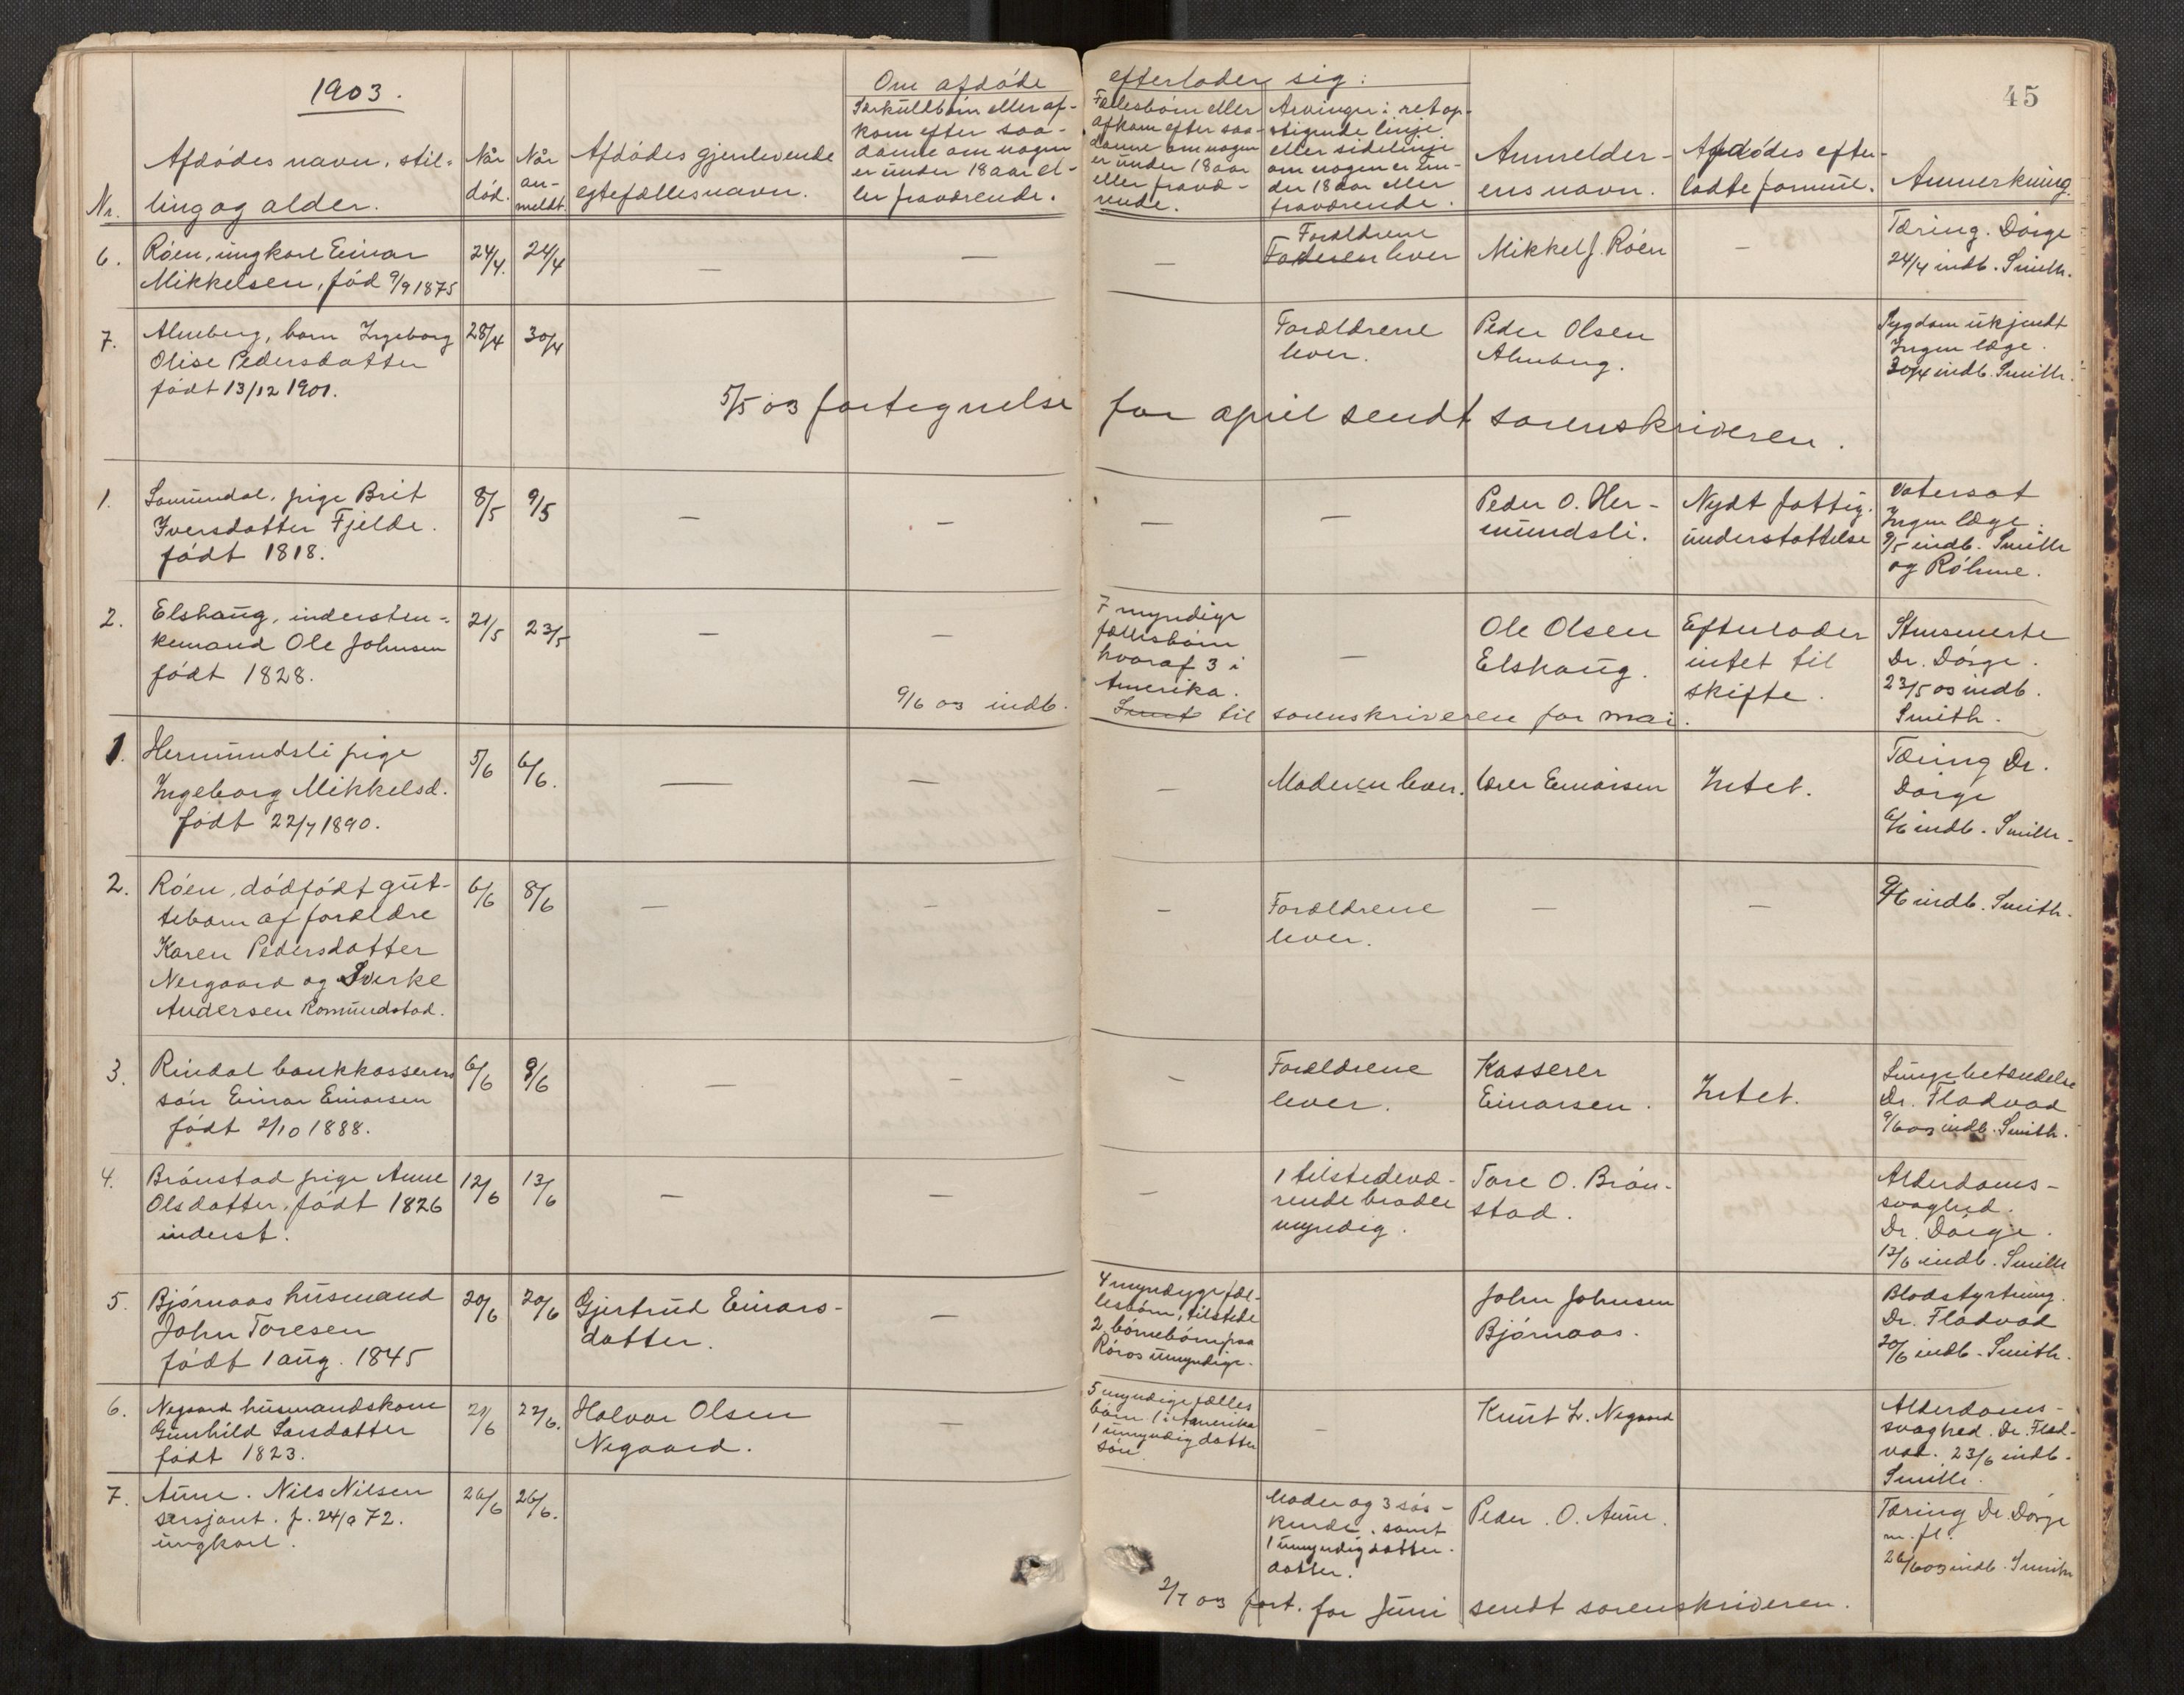 1903.
45
Om afdøde efterlader sig:
Nr.
Afdødes navn, stil-
ling og alder.
Når
død.
Når
an-
meldt.
Afdødes gjenlevende
egtefælles navn.
Særkuldbørn eller af-
kom efter saa-
danne om nogen
er under 18 aar el-
ler fraværende.
Fællesbørn eller
afkom efter saa-
danne om nogen
er under 18 aar
eller fravæ-
rende.
Arvinger i ret op-
stigende linje
eller sidelinje
om nogen er un-
der 18 aar eller
fraværende.
Anmelder-
ens navn.
Afdødes efter-
ladte formue.
Anmerkning.
6.
Røen, ungkarl Einar
Mikkelsen, fød 9/9 1875
24/4.
24/4
—
—
—
Forældrene
Faderen lever
Mikkel J. Røen
—
Tæring. Dørge
24/4 indb. Smith.
7.
Almberg, barn Ingeborg
Olise Pedersdatter
født 13/12 1901.
28/4
30/4
Forældrene
lever.
Peder Olsen
Almberg.
Sygdom ukjendt
Ingen læge.
30/4 indb. Smith.
5/5 03 fortegnelse for april sendt sorenskriveren.
1.
Somundal, pige Brit
Iversdatter Fjelde.
født 1818.
8/5
9/5
—
—
—
—
Peder O. Her-
mundsli.
Nydt fattig-
understøttelse
Vatersot
Ingen læge.
9/5 indb. Smith
og Røhme.
2.
Elshaug, indersten-
kemand Ole Johnsen
født 1828.
21/5
23/5
—
—
7 myndige
fællesbørn
hvoraf 3 i
Amerika.
—
Ole Olsen
Elshaug.
Efterlader
intet til
skifte.
Dr. Dørge.
23/5 03 indb.
Smith.
9/6 03 indb. Sendt til sorenskriveren for mai.
1.
Hermundsli pige
Ingeborg Mikkelsd.
født 22/7 1890.
5/6
6/6.
—
—
—
Moderen lever.
Einarsen
Intet.
Tæring Dr.
Dørge
6/6 indb. Smith.
2.
Røen, dødfødt gut-
tebarn af forældre
Karen Pedersdatter
Nergaard og Sverke
Andersen Romundstad.
6/6
8/6
—
—
—
Forældrene
lever.
—
—
9/6 indb. Smith.
3.
Rindal bankkasserers
søn Einar Einarsen
født 2/10 1888.
6/6
9/6
—
—
—
Forældrene
lever.
Kasserer
Einarsen.
Intet.
Lungebetændelse
Dr. Fladvad
9/6 03 indb. Smith.
4.
Brønstad pige Anne
Olsdatter, født 1826
inderst.
12/6
13/6
—
—
—
1 tilstedevæ-
rende broder
myndig.
Tore O. Brøn-
stad.
Alderdoms-
svaghed.
Dr. Dørge.
13/6 indb. Smith
5.
Bjørnaas husmand
John Toresen
født 1 aug. 1845
20/6
20/6
Gjertrud Einars-
datter.
—
4 myndyge fæl-
lesbørn, tilstede
2 børnebørn paa
Røros umyndige.
John Johnsen
Bjørnaas.
Blodstyrtning.
Dr. Fladvad
20/6 indb. Smith.
6.
Negaard husmandskone
Gunhild Larsdatter
født 1823.
21/6
23/6.
Halvor Olsen
Negaard.
—
5 myndige fælles
børn 1 i Amerika
1 umyndig datter
søn
—
Knut L. Negaard
Alderdoms-
svaghed. Dr. Flad-
vad. 23/6 indb.
Smith.
7.
Aune. Nils Nilsen
sersjant. f. 24/9 72.
ungkarl.
26/6
26/6.
Moder og 3 søs-
kende, samt
1 umyndig datter-
datter.
Peder O. Aune.
Tæring Dr. Dørge
m. fl.
26/6 03 indb. Smith
2/7 03 fort. for Juni sendt sorenskriveren.